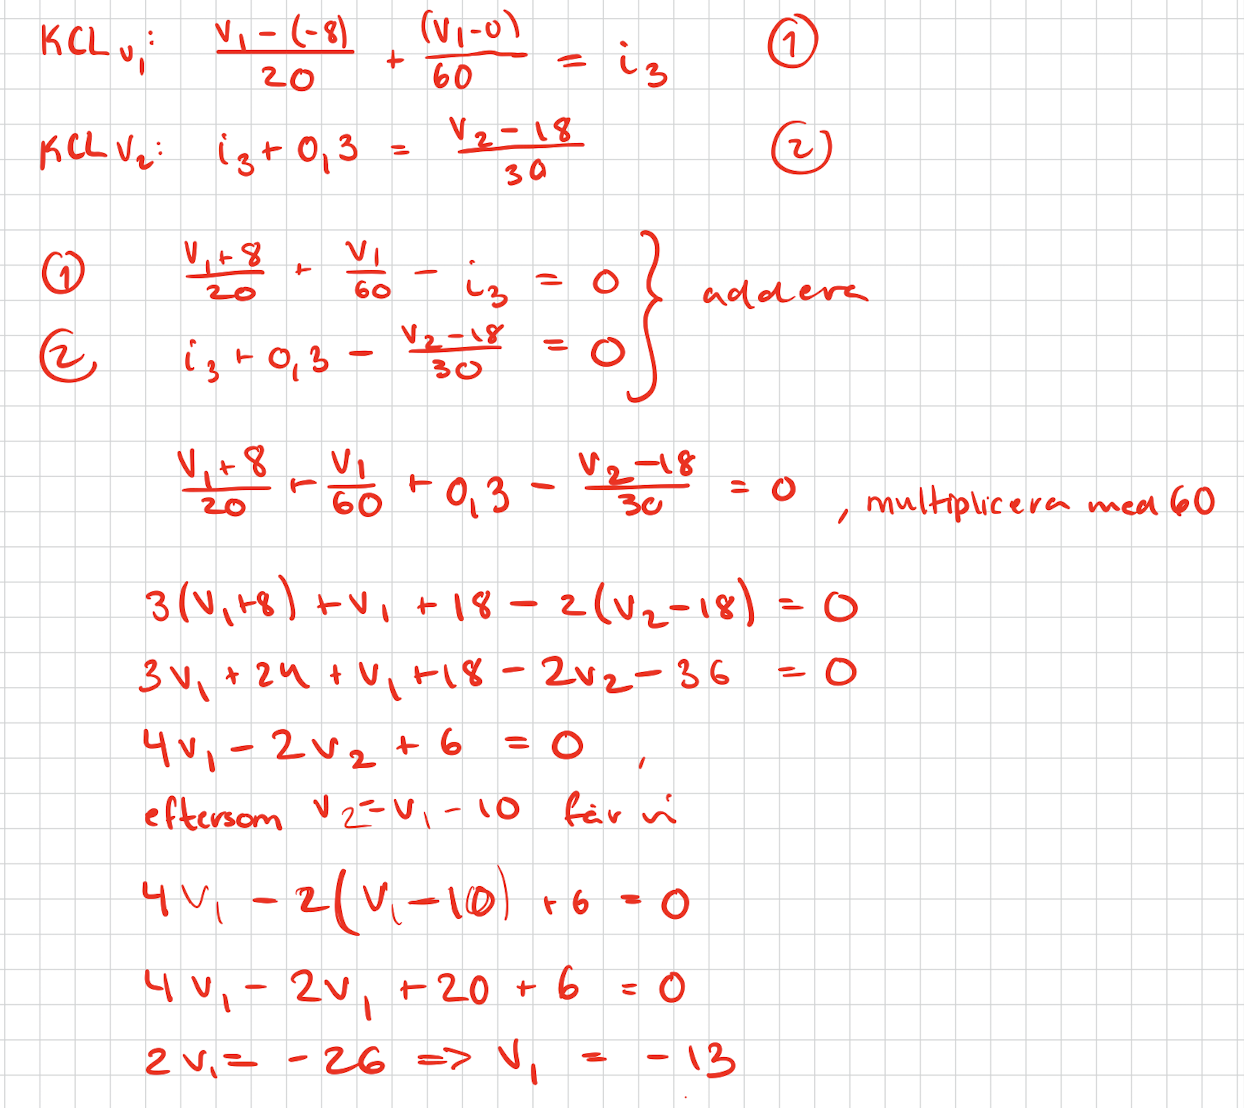 KCL v₁: (v₁ - (-8))/20 + (v₁-0)/60 = i₃ ①
KCL v₂: i₃ + 0,3 = (v₂ - 18)/30 ②
① (v₁+8)/20 + v₁/60 - i₃ = 0 } addera
② i₃ + 0,3 - (v₂-18)/30 = 0
(v₁+8)/20 + v₁/60 + 0,3 - (v₂-18)/30 = 0 , multiplicera med 60
3(v₁+8) + v₁ + 18 - 2(v₂-18) = 0
3v₁ + 24 + v₁ + 18 - 2v₂ - 36 = 0
4v₁ - 2v₂ + 6 = 0 ,
eftersom v₂ = v₁ - 10 får vi
4v₁ - 2(v₁-10) + 6 = 0
4v₁ - 2v₁ + 20 + 6 = 0
2v₁ = -26 => v₁ = -13